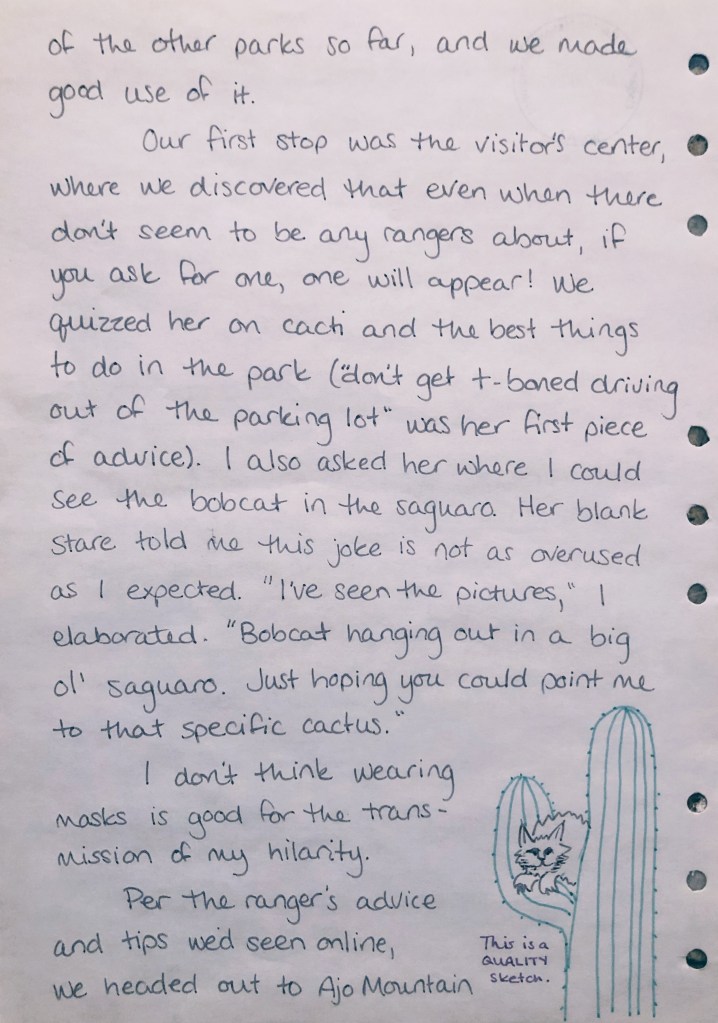 of the other parks so far, and we made
good use of it.
Our first stop was the visitor's center,
where we discovered that even when there
don't seem to be any rangers about, if
you ask for one, one will appear! We
quizzed her on cacti and the best things
to do in the park ("don't get t-boned driving
out of the parking lot" was her first piece
of advice). I also asked her where I could
see the bobcat in the saguaro. Her blank
stare told me this joke is not as overused
as I expected. "I've seen the pictures," I
elaborated. "Bobcat hanging out in a big
ol' saguaro. Just hoping you could point me
to that specific cactus."
I don't think wearing
masks is good for the trans-
mission of my hilarity.
Per the ranger's advice
and tips we'd seen online,
we headed out to Ajo Mountain
This is a
QUALITY
sketch.